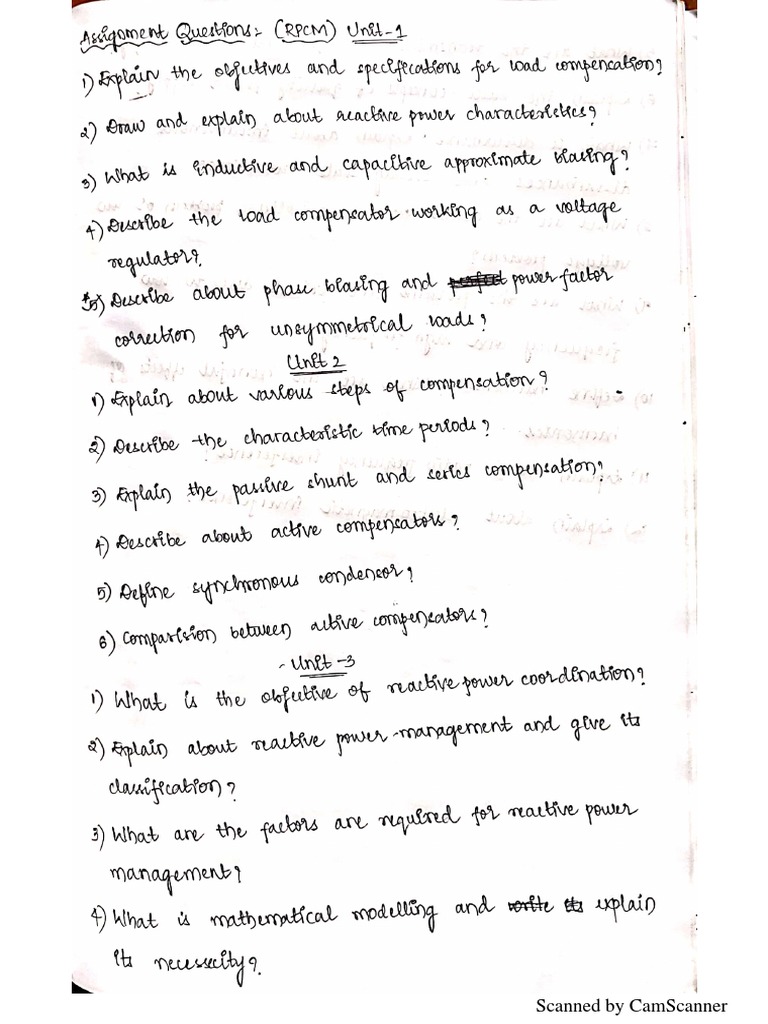 Assignment Questions:- (RPCM) Unit-1
1) Explain the objectives and specifications for load compensation?
2) Draw and explain about reactive power characteristics?
3) What is inductive and capacitive approximate biasing?
4) Describe the load compensator working as a voltage
regulator?
*5) Describe about phase biasing and perfect power factor
correction for unsymmetrical loads?
Unit 2
1) Explain about various steps of compensation?
2) Describe the characteristic time periods?
3) Explain the passive shunt and series compensation?
4) Describe about active compensators?
5) Define synchronous condensor?
6) Comparision between active compensators?
- Unit -3
1) What is the objective of reactive power coordination?
2) Explain about reactive power-management and give its
classification?
3) What are the factors are required for reactive power
management?
4) What is mathematical modelling and write its explain
its necessecity?
Scanned by CamScanner